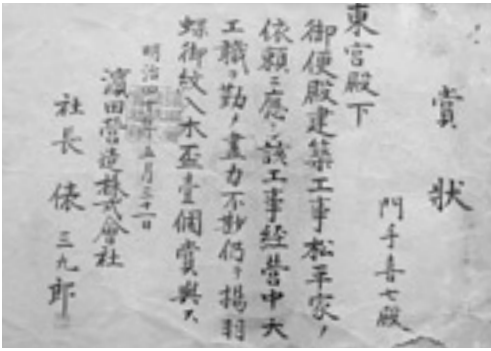 賞狀
門手喜七殿
東宮殿下
御便殿建築工事松平家ノ
依賴ニ應シ該工事経営中大
工職ヲ勤ノ盡力不尠仍テ揚羽
蝶御紋入木盃壹個賞與ス
明治四十年五月三十一日
濵田營造株式會社
社長 俵 三九郎